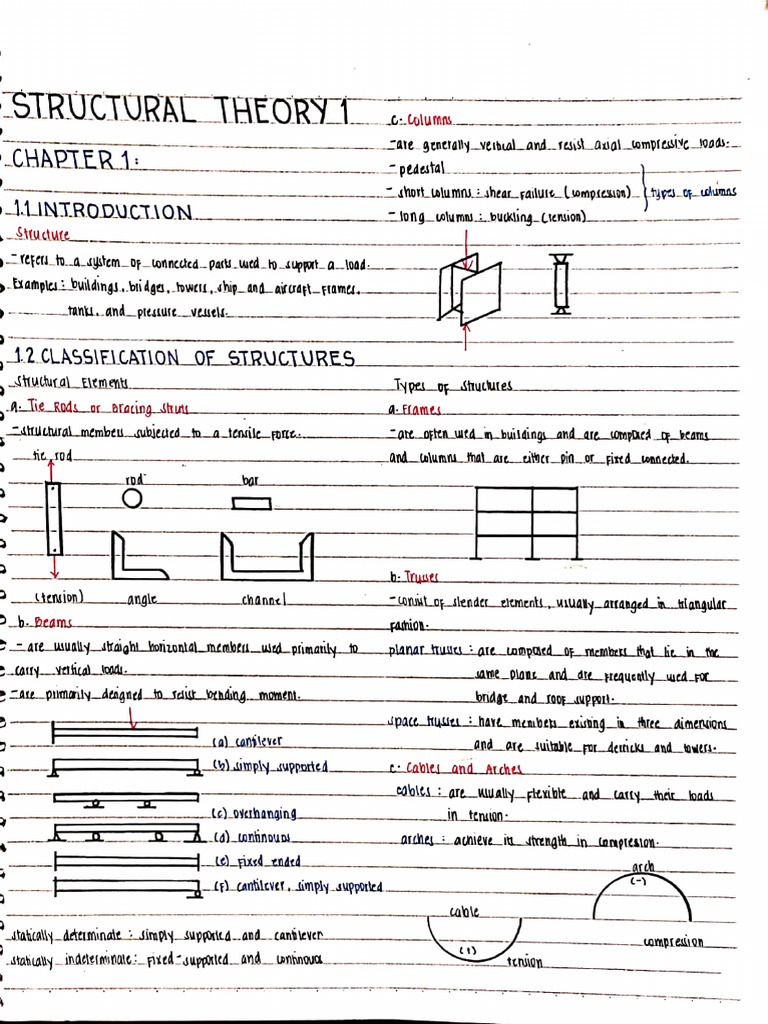 STRUCTURAL THEORY 1
CHAPTER 1:
1.1 INTRODUCTION
Structure
- refers to a system of connected parts used to support a load.
Examples: buildings, bridges, towers, ship and aircraft frames,
tanks, and pressure vessels.
1.2 CLASSIFICATION OF STRUCTURES
Structural Elements
a. Tie Rods or Bracing Struts
- structural members subjected to a tensile force.
tie rod
rod
bar
(tension)
angle
channel
b. Beams
- are usually straight horizontal members used primarily to
carry vertical loads.
- are primarily designed to resist bending moment.
(a) cantilever
(b) simply supported
(c) overhanging
(d) continous
(e) fixed ended
(f) cantilever, simply supported
statically determinate: simply supported and cantilever
statically indeterminate: fixed-supported and continous
c. Columns
- are generally vertical and resist axial compressive loads.
- pedestal
- short columns: shear failure (compression)
types of columns
- long columns: buckling (tension)
Types of structures
a. Frames
- are often used in buildings and are composed of beams
and columns that are either pin or fixed connected.
b. Trusses
- consist of slender elements, usually arranged in triangular
fashion.
planar trusses: are composed of members that lie in the
same plane and are frequently used for
bridge and roof support.
space trusses: have members existing in three dimensions
and are suitable for derricks and towers.
c. Cables and Arches
cables: are usually flexible and carry their loads
in tension.
arches: achieve its strength in compresion.
arch
(-)
cable
compression
(+)
tension